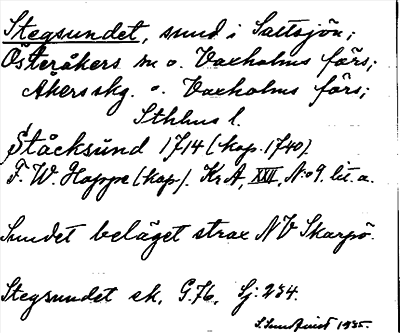 Stegsundet, sund i Saltsjön;
Österåkers sn o. Vaxholms förs;
Åkers skg. o. Vaxholms förs;
Sthlms l.
Ståcksund 1714 (kop. 1740).
F. W. Hoppe (kop). Kr A, XXII, N:o 9. lit. a.
Sundet beläget strax NV Skarpö.
Stegsundet ek. G.76, Gj: 234.
S. Sundqvist 1935.